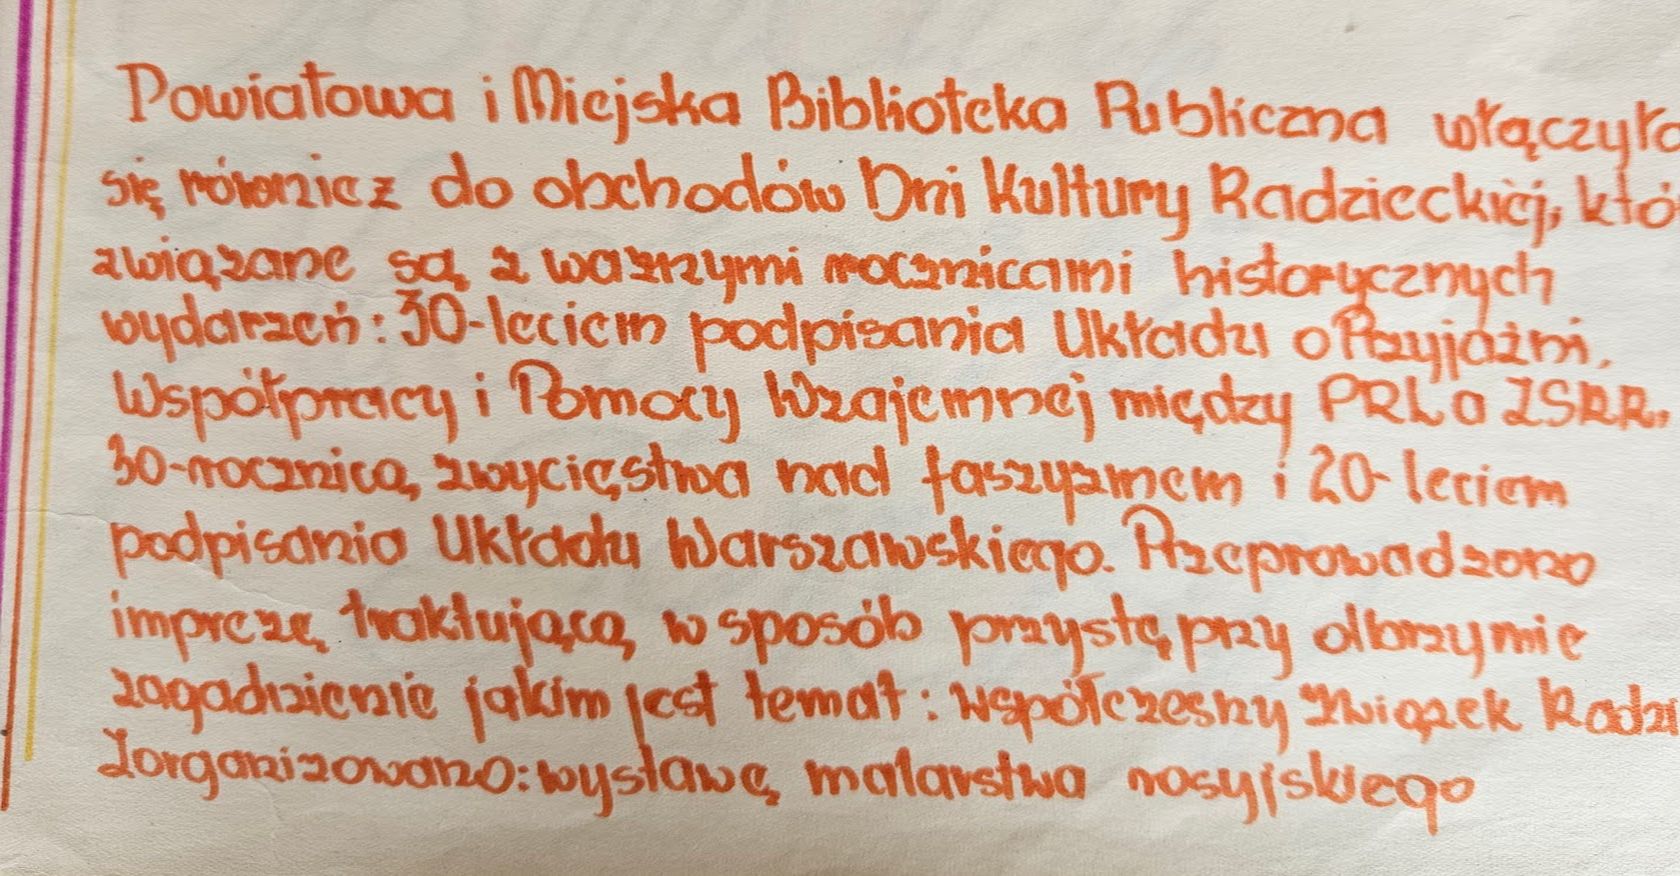 Powiatowa i Miejska Biblioteka Publiczna włączyła
się również do obchodów Dni Kultury Radzieckiej, któ
związane są z ważnymi rocznicami historycznych
wydarzeń: 30-leciem podpisania Układu o Przyjaźni,
Współpracy i Pomocy Wzajemnej między PRL a ZSRR,
30-rocznicą zwycięstwa nad faszyzmem i 20-leciem
podpisania Układu Warszawskiego. Przeprowadzono
imprezę traktującą w sposób przystępny olbrzymie
zagadnienie jakim jest temat: współczesny Związek Radzi
Zorganizowano: wystawę malarstwa rosyjskiego